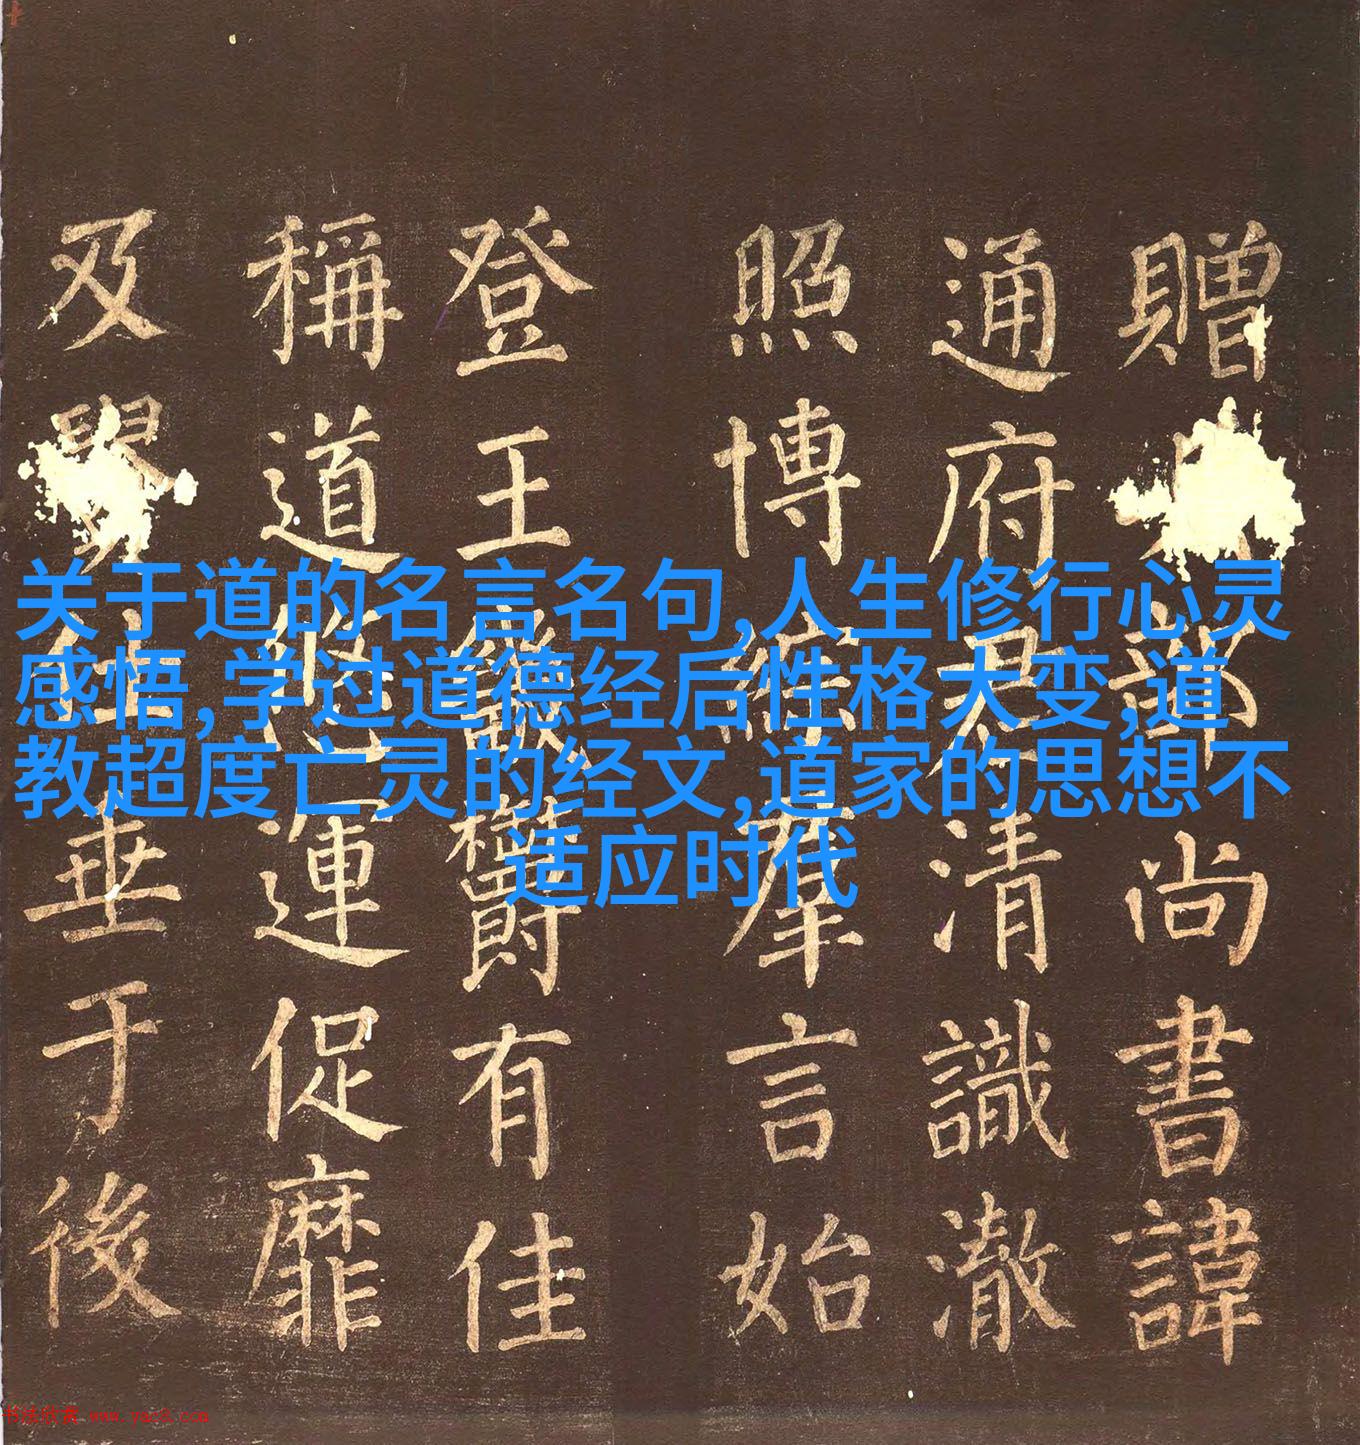 关于道的名言名句,人生修行心灵
感悟,学过道德经后性格大变,道
教超度亡灵的经文,道家的思想不
适应时代
贈尚書諱
通府君清識澈
照博群言始
登王爵有佳
稱道運促靡
及垂于後
书法欣赏 www.yac8.com